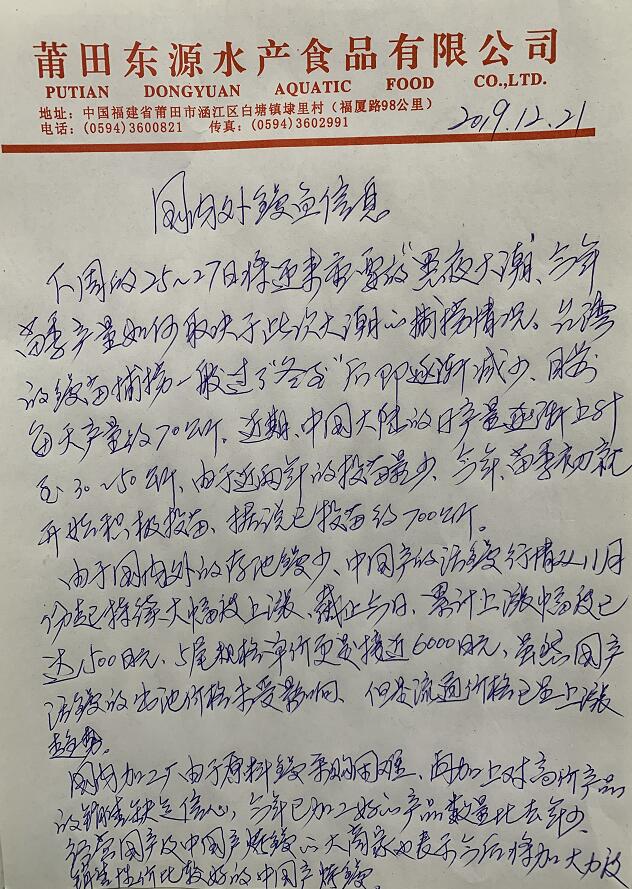 莆田东源水产食品有限公司
PUTIAN DONGYUAN AQUATIC FOOD CO.,LTD.
地址：中国福建省莆田市涵江区白塘镇埭里村（福厦路98公里）
电话：(0594)3600821 传真：(0594)3602991
2019.12.21
国内外鳗鱼信息
下周的25~27日将迎来重要的“黑夜大潮”、今年
苗季产量如何取决于此次大潮的捕捞情况。台湾
的鳗苗捕捞一般过了“冬至”后即逐渐减少、目前
每天产量约70公斤。近期、中国大陆的日产量逐渐上升
至30~50公斤、由于近两年的投苗量少、今年、苗季初就
开始积极投苗、据说已投苗约700公斤。
由于国内外的存池鳗少、中国产的活鳗行情从11月
份起持续大幅度上涨、截止今日、累计上涨幅度已
达1,500日元、5尾规格单价更是接近6000日元、虽然国产
活鳗的出池价格未受影响、但是流通价格已呈上涨
趋势。
国内加工厂由于原料鳗采购困难、再加上对高价产品
的销售缺乏信心、今年已加工好的产品数量比去年少、
经营国产及中国产烤鳗的大商家也表示今后将加大力度
销售性价比较好的中国产烤鳗。